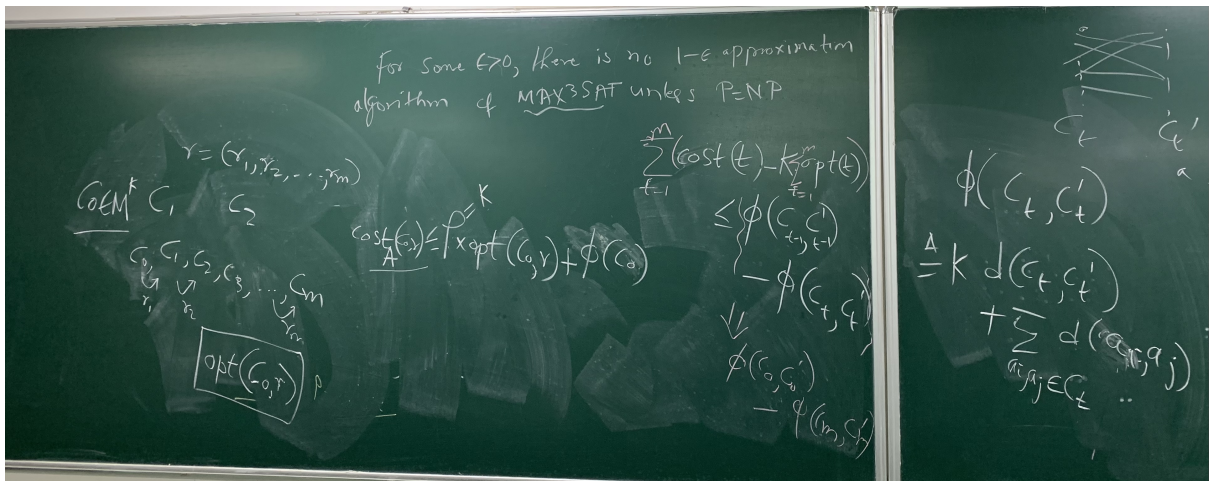 For some ε>0, there is no 1-ε approximation
algorithm of MAX3SAT unless P=NP
r = (r₁, r₂, ..., rₘ)
C₀∈Mᴷ C₁ C₂
C₀, C₁, C₂, C₃, ..., Cₘ
r₁ r₂ rₘ
opt(C₀, r)
cost_A(C₀, r) ≤ ρ x opt(C₀, r) + ϕ(C₀)
= K
m
∑ (cost(t) - K ∑ opt(t))
t=1
≤ {ϕ(Cₜ₋₁, C'ₜ₋₁)
- ϕ(Cₜ, C'ₜ)
ϕ(C₀, C'₀)
- ϕ(Cₘ, C'ₘ)
Cₜ C'ₜ
a
ϕ(Cₜ, C'ₜ)
≜ K d(Cₜ, C'ₜ)
+ ∑ d(aᵢ, aⱼ)
aᵢ, aⱼ ∈ Cₜ